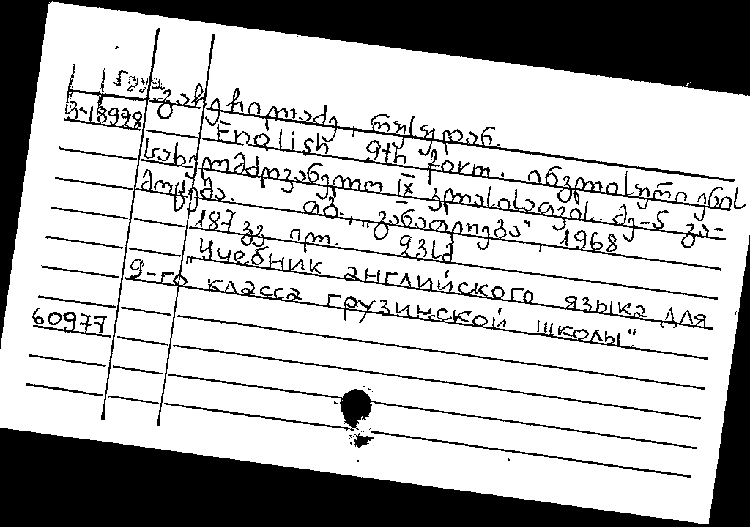 груз.
З-18998
გაჩეჩილაძე, რუსუდან.
English 9th form. ინგლისური ენის
სახელმძღვანელო IX კლასისათვის. მე-5 გა-
მოცემა. თბ., „განათლება“, 1968
187 გვ. ილ. 23სმ
„Учебник английского языка для
9-го класса грузинской школы“.
60977